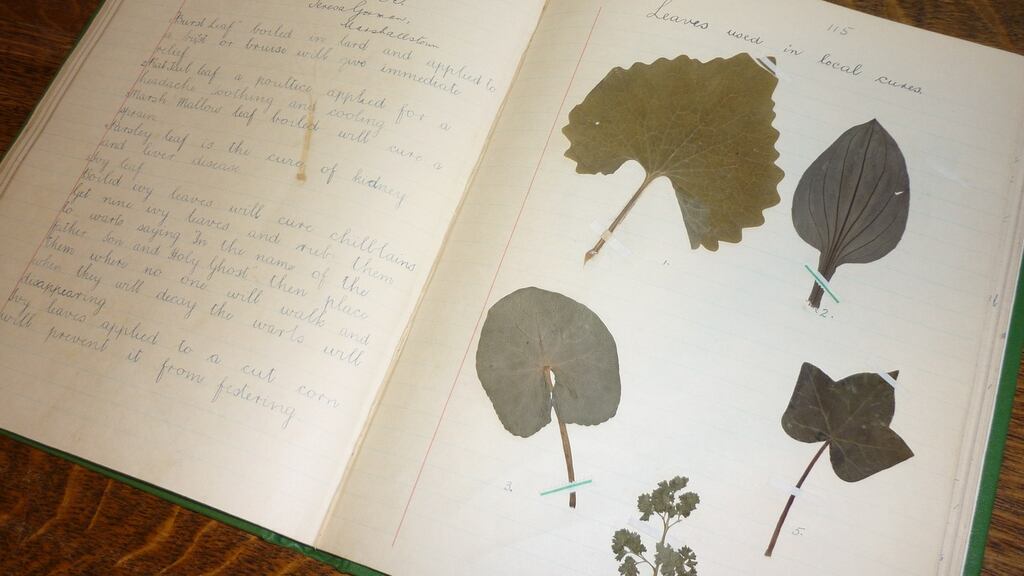 Teresa Gorman,
Marshallstown
"Burst Leaf" boiled in lard and applied to
a bite or bruise will give immediate
relief
leaf a poultice applied for a
headache soothing and cooling
Marsh Mallow leaf boiled will cure a
sprain
Parsley leaf is the cure of kidney
and liver disease
Ivy leaf
Boiled ivy leaves will cure chillblains
Get nine ivy leaves and rub them
to warts saying In the name of the
Father Son and Holy Ghost" then place
them where no one will walk and
when they will decay the warts will
disappearing
Ivy leaves applied to a cut corn
will prevent it from festering
115
Leaves used in local cures
1.
2.
3.
5.